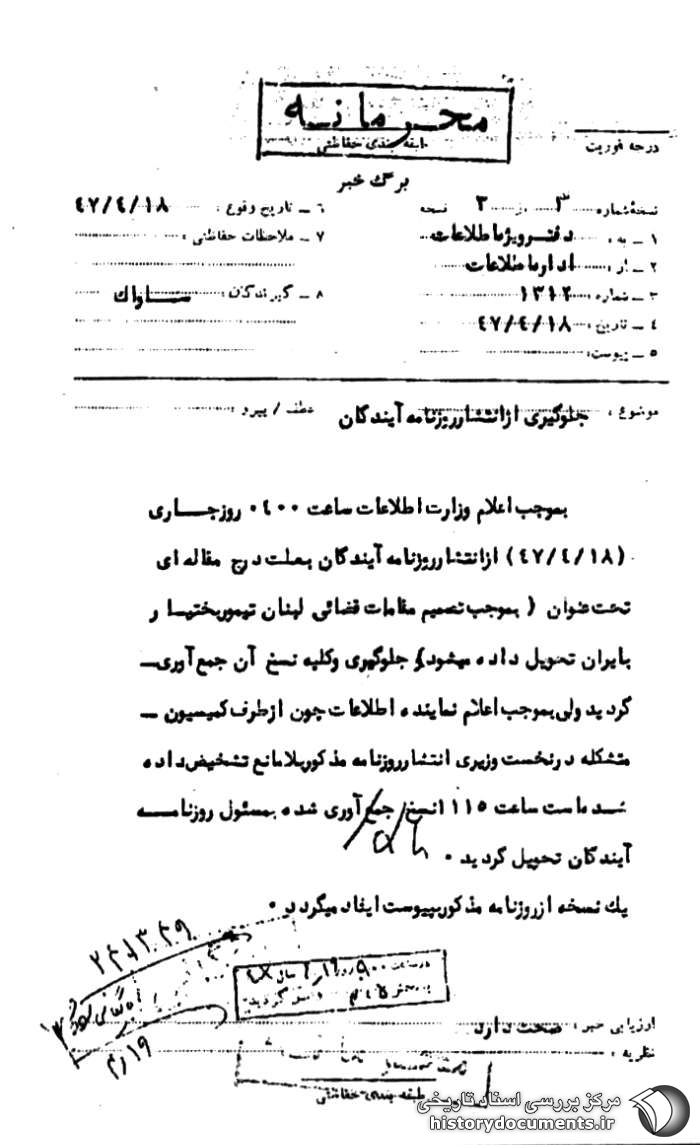 محرمانه
طبقه بندی حفاظتی
درجه فوریت
برگ خبر
نسخه شماره ۳ از ۳ نسخه
۱ - به : دفتر ویژه اطلاعات
۲ - از : اداره اطلاعات
۳ - شماره : ۱۳۱۲
۴ - تاریخ : ۴۷/۴/۱۸
۵ - پیوست :
۶ - تاریخ وقوع : ۴۷/۴/۱۸
۷ - ملاحظات حفاظتی :
۸ - گیرندگان : ساواک
موضوع : جلوگیری ازانتشارروزنامه آیندگان
عطف / پیرو :
بموجب اعلام وزارت اطلاعات ساعت ۰۴۰۰ روزجاری
(۴۷/۴/۱۸) ازانتشارروزنامه آیندگان بعلت درج مقاله ای
تحت عنوان ( بموجب تصمیم مقامات قضائی لبنان تیموربختیار
بایران تحویل داده میشود) جلوگیری وکلیه نسخ آن جمع آوری
گردید ولی بموجب اعلام نماینده اطلاعات چون ازطرف کمیسیون
متشکله درنخست وزیری انتشارروزنامه مذکوربلامانع تشخیص داده
شده است ساعت ۱۱۱۵ نسخ جمع آوری شده بمسئول روزنامه
آیندگان تحویل گردید .
یک نسخه ازروزنامه مذکوربپیوست ایفاد میگردد .
بایگانی شود
۱۹/۴
ارزیابی خبر : صحت دارد
نظریه :
طبقه بندی حفاظتی
مرکز بررسی اسناد تاریخی
historydocuments.ir